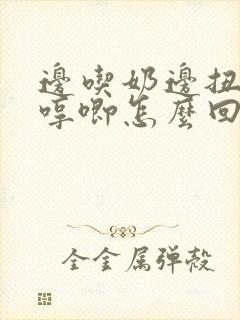 邊喫奶邊扭
哼唧怎麼回
全金属弹殻